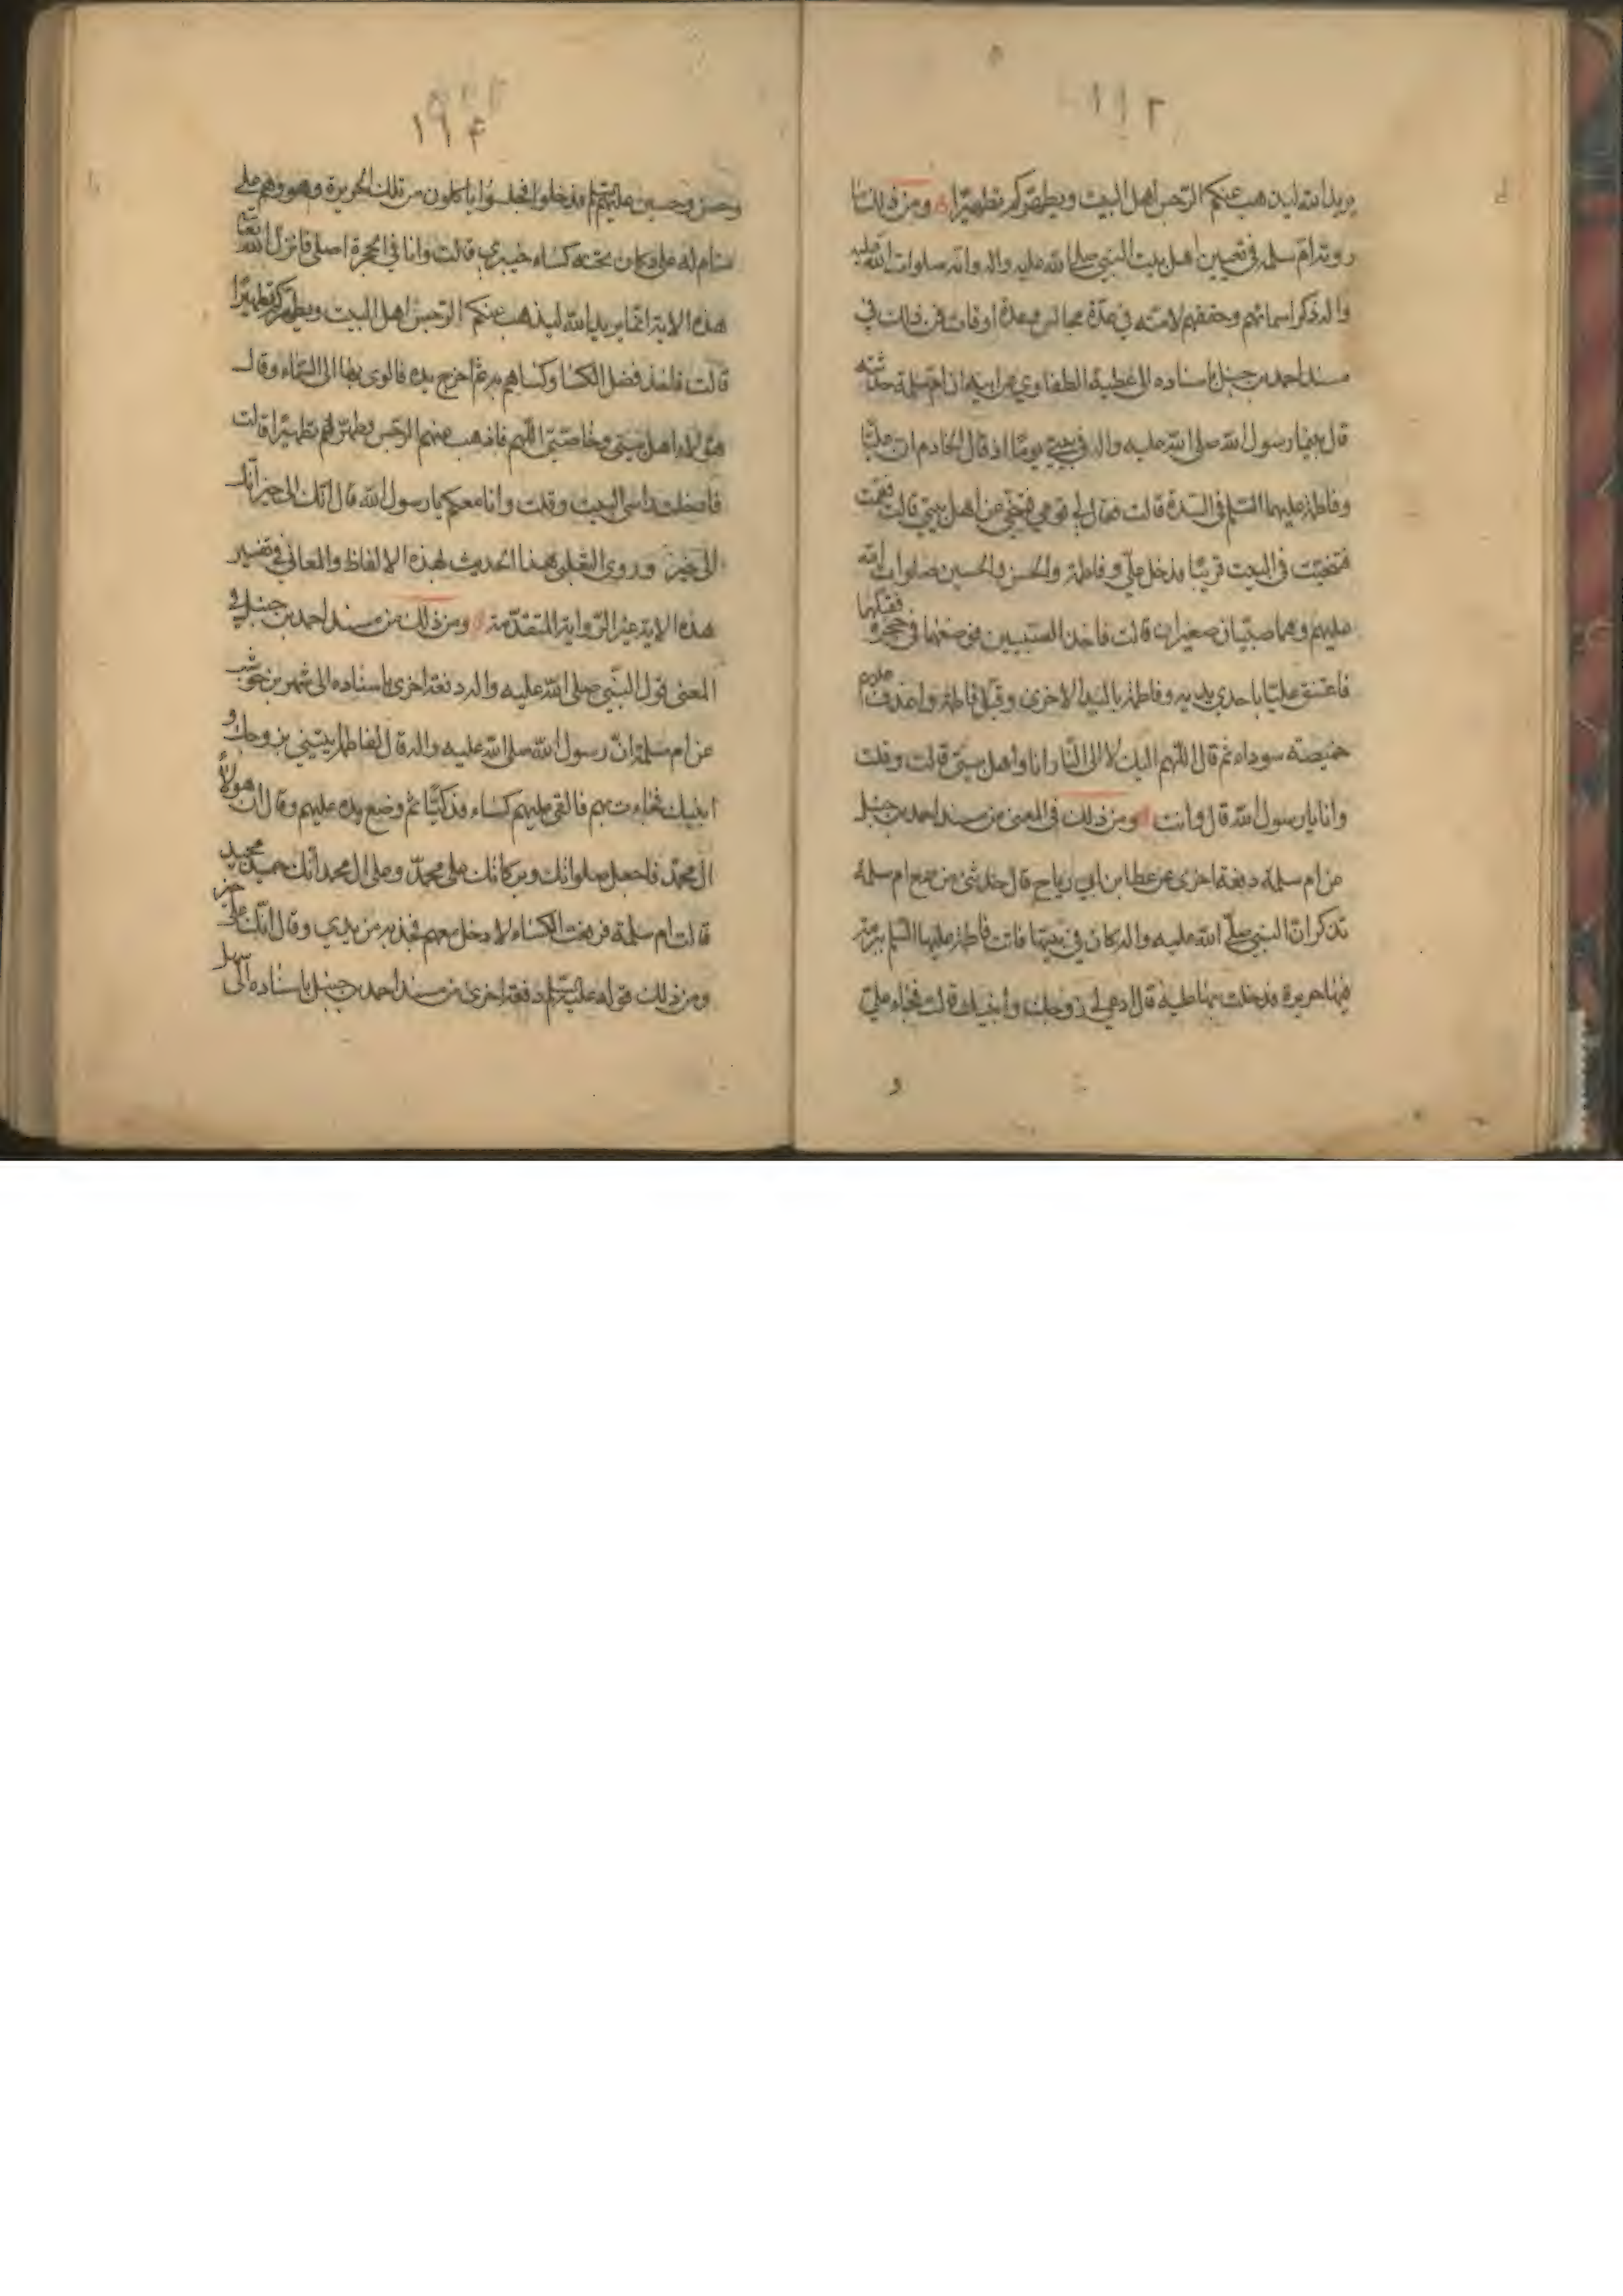 ١١٢
يريد الله ليذهب عنكم الرجس اهل البيت ويطهركم تطهيرا ومن ذلك ما
روته ام سلمه في تعيين اهل بيت النبي صلى الله عليه واله وانه صلوات الله عليه
واله ذكر اسمائهم وحققهم لامته في عدة مجالس وعدة اوقات فمن ذلك في
مسند احمد بن حنبل باسناده الى عطية الطفاوي عن ابيه ان ام سلمة حدثته
قال بينما رسول الله صلى الله عليه واله في بيتي يوما اذ قال الخادم ان عليا
وفاطمة عليهما السلم في السدة قالت فقال لي قومي فتنحي عن اهل بيتي قالت فقمت
فتنحيت في البيت قريبا فدخل علي وفاطمة والحسن والحسين صلوات الله
عليهم وهما صبيان صغيران قالت فاخذ الصبيين فوضعهما في حجره فقبلهما
فاعتنق عليا باحدى يديه وفاطمة باليد الاخرى وقبل فاطمة واغدف عليهم
خميصة سوداء ثم قال اللهم اليك لا الى النار انا واهل بيتي قالت وقلت
وانا يا رسول الله قال وانت ومن ذلك في المعنى من مسند احمد بن حنبل
عن ام سلمة دفعة اخرى عن عطا بن ابي رياح قال حدثني من سمع ام سلمة
تذكر ان النبي صلى الله عليه واله كان في بيتها فاتت فاطمة عليها السلم ببرمة
فيها حريرة فدخلت بها عليه قال ادعي لي زوجك وابنيك قالت فجاء علي
و
١٩٤
وحسن وحسين عليهم السلم فدخلوا فجلسوا ياكلون من تلك الحريرة وهو وهم على
منام له على دكان تحته كساء خيبري قالت وانا في الحجرة اصلي فانزل الله تعالى
هذه الاية انما يريد الله ليذهب عنكم الرجس اهل البيت ويطهركم تطهيرا
قالت فاخذ فضل الكسا وكساهم به ثم اخرج يده فالوى بها الى السماء وقال
هؤلاء اهل بيتي وخاصتي اللهم فاذهب عنهم الرجس وطهرهم تطهيرا قالت
فادخلت راسي البيت وقلت وانا معكم يا رسول الله قال انك الى خير انك
الى خير وروى الثعلبي هذا الحديث بهذه الالفاظ والمعاني في تفسير
هذه الاية غير الرواية المتقدمة ومن ذلك من مسند احمد بن حنبل في
المعنى قول النبي صلى الله عليه واله دفعة اخرى باسناده الى شهر بن حوشب
عن ام سلمة ان رسول الله صلى الله عليه واله قال لفاطمة ايتيني بزوجك و
ابنيك فجاءت بهم فالقى عليهم كساء فدكيا ثم وضع يده عليهم وقال ان هولاء
ال محمد فاجعل صلواتك وبركاتك على محمد وعلى ال محمد انك حميد مجيد
قالت ام سلمة فرفعت الكساء لادخل معهم فجذبه من يدي وقال انك على خير
ومن ذلك قوله عليه السلم دفعة اخرى من مسند احمد بن حنبل باسناده الى سهل